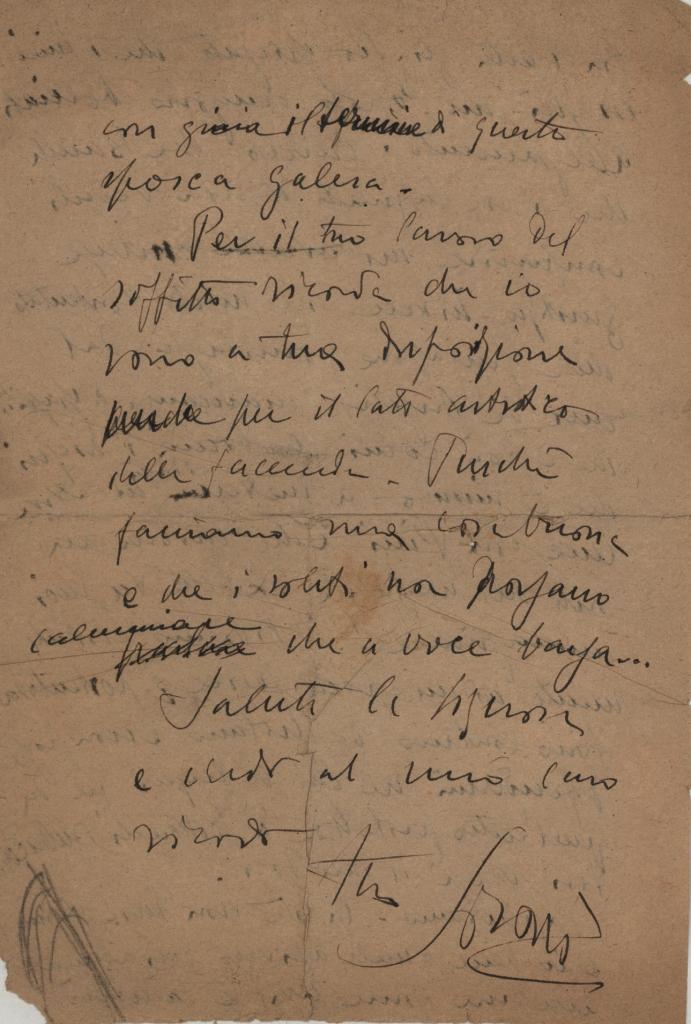 con gioia il termine di questa
sporca galera.
Per il tuo lavoro del
soffitto ricorda che io
sono a tua disposizione
anche per il lato artistico
della faccenda. Purché
facciamo una cosa buona
e che i soliti non possano
calunniare che a voce bassa...
Saluti la Signora
e credi al mio caro
ricordo
tuo